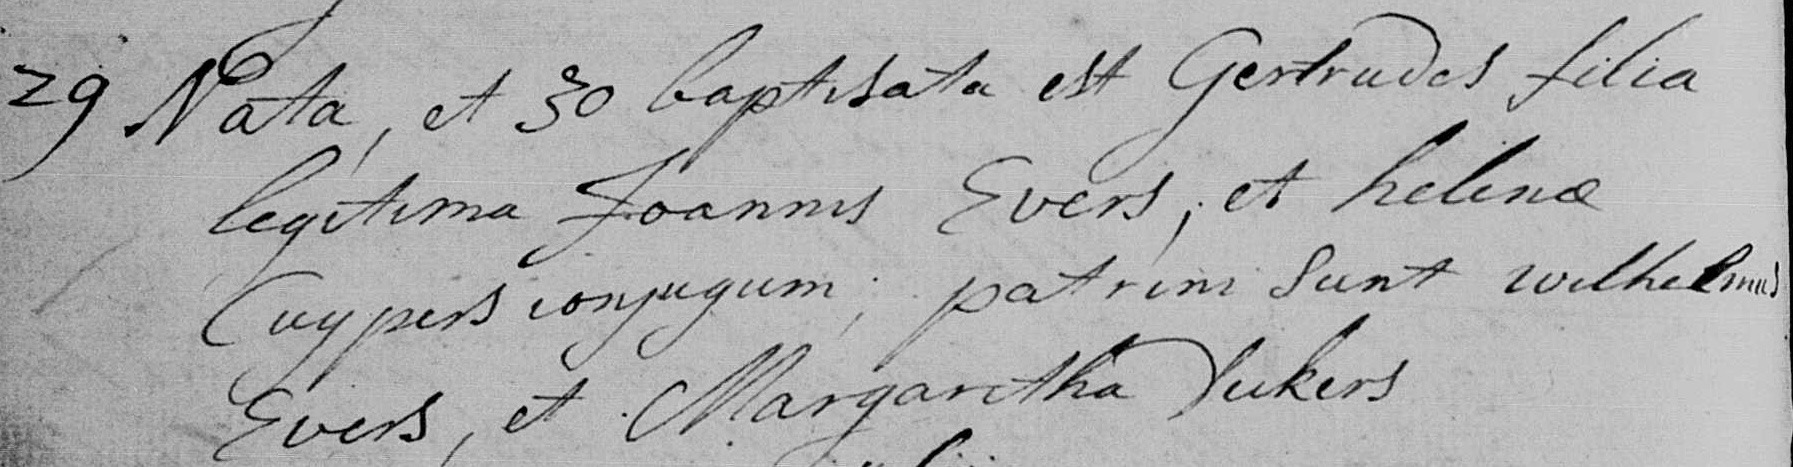 29 Nata, et 30 baptisata est Gertrudes filia
legitima Joannis Evers, et helenæ
Cuypers conjugum; patrini sunt wilhelmus
Evers, et Margaretha